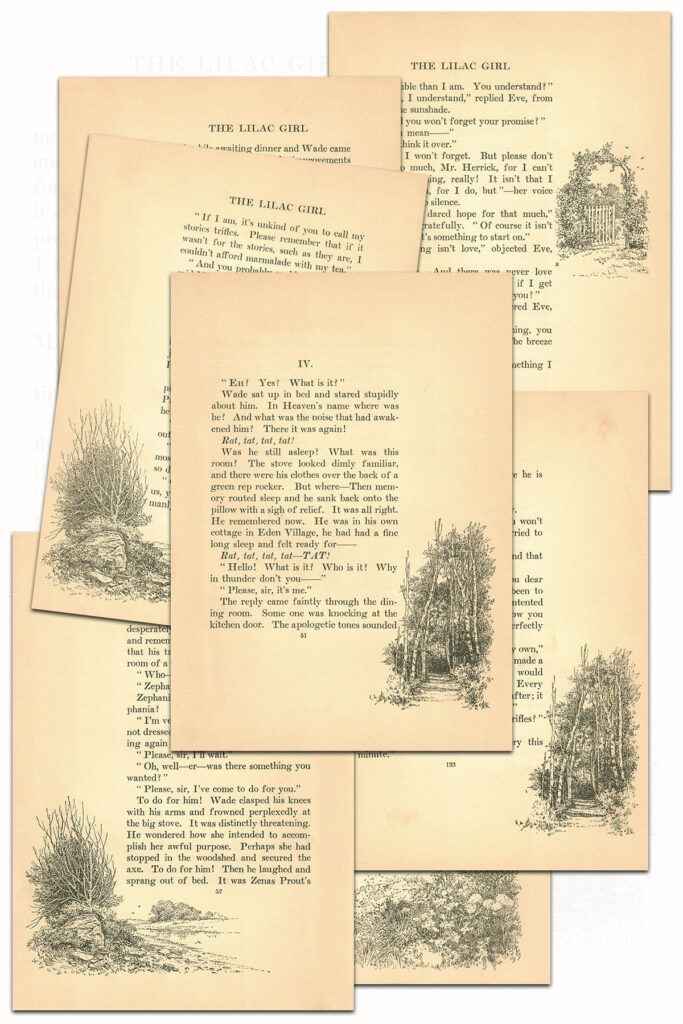 THE LILAC GIRL
able than I am. You understand?"
I understand," replied Eve, from
the sunshade.
you won't forget your promise?"
mean——"
think it over."
I won't forget. But please don't
much, Mr. Herrick, for I can't
really! It isn't that I
for I do, but "—her voice
silence.
dared hope for that much,"
gratefully. " Of course it isn't
it's something to start on."
isn't love," objected Eve,
And there was never love
if I get
you?"
Eve,
you
the breeze
I
THE LILAC GIRL
while awaiting dinner and Wade came
improvements
THE LILAC GIRL
" If I am, it's unkind of you to call my
stories trifles. Please remember that if it
wasn't for the stories, such as they are, I
couldn't afford marmalade with my tea."
" And you probably
IV.
" EH? Yes? What is it?"
Wade sat up in bed and stared stupidly
about him. In Heaven's name where was
he? And what was the noise that had awak-
ened him? There it was again!
Rat, tat, tat, tat!
Was he still asleep? What was this
room? The stove looked dimly familiar,
and there were his clothes over the back of a
green rep rocker. But where—Then mem-
ory routed sleep and he sank back onto the
pillow with a sigh of relief. It was all right.
He remembered now. He was in his own
cottage in Eden Village, he had had a fine
long sleep and felt ready for——
Rat, tat, tat, tat—TAT!
" Hello! What is it? Who is it? Why
in thunder don't you——"
" Please, sir, it's me."
The reply came faintly through the din-
ing room. Some one was knocking at the
kitchen door. The apologetic tones sounded
51
he is
won't
and that
you dear
been to
you
perfectly
own,"
made a
would
Every
after; it
trifles?"
this
minute.
133
desperately
and
that his
room of a
" Who—
phania?
" I'm
not dressed
ing again
" Please, sir, I'll wait."
" Oh, well—er—was there something you
wanted?"
" Please, sir, I've come to do for you."
To do for him! Wade clasped his knees
with his arms and frowned perplexedly at
the big stove. It was distinctly threatening.
He wondered how she intended to accom-
plish her awful purpose. Perhaps she had
stopped in the woodshed and secured the
axe. To do for him! Then he laughed and
sprang out of bed. It was Zenas Prout's
52